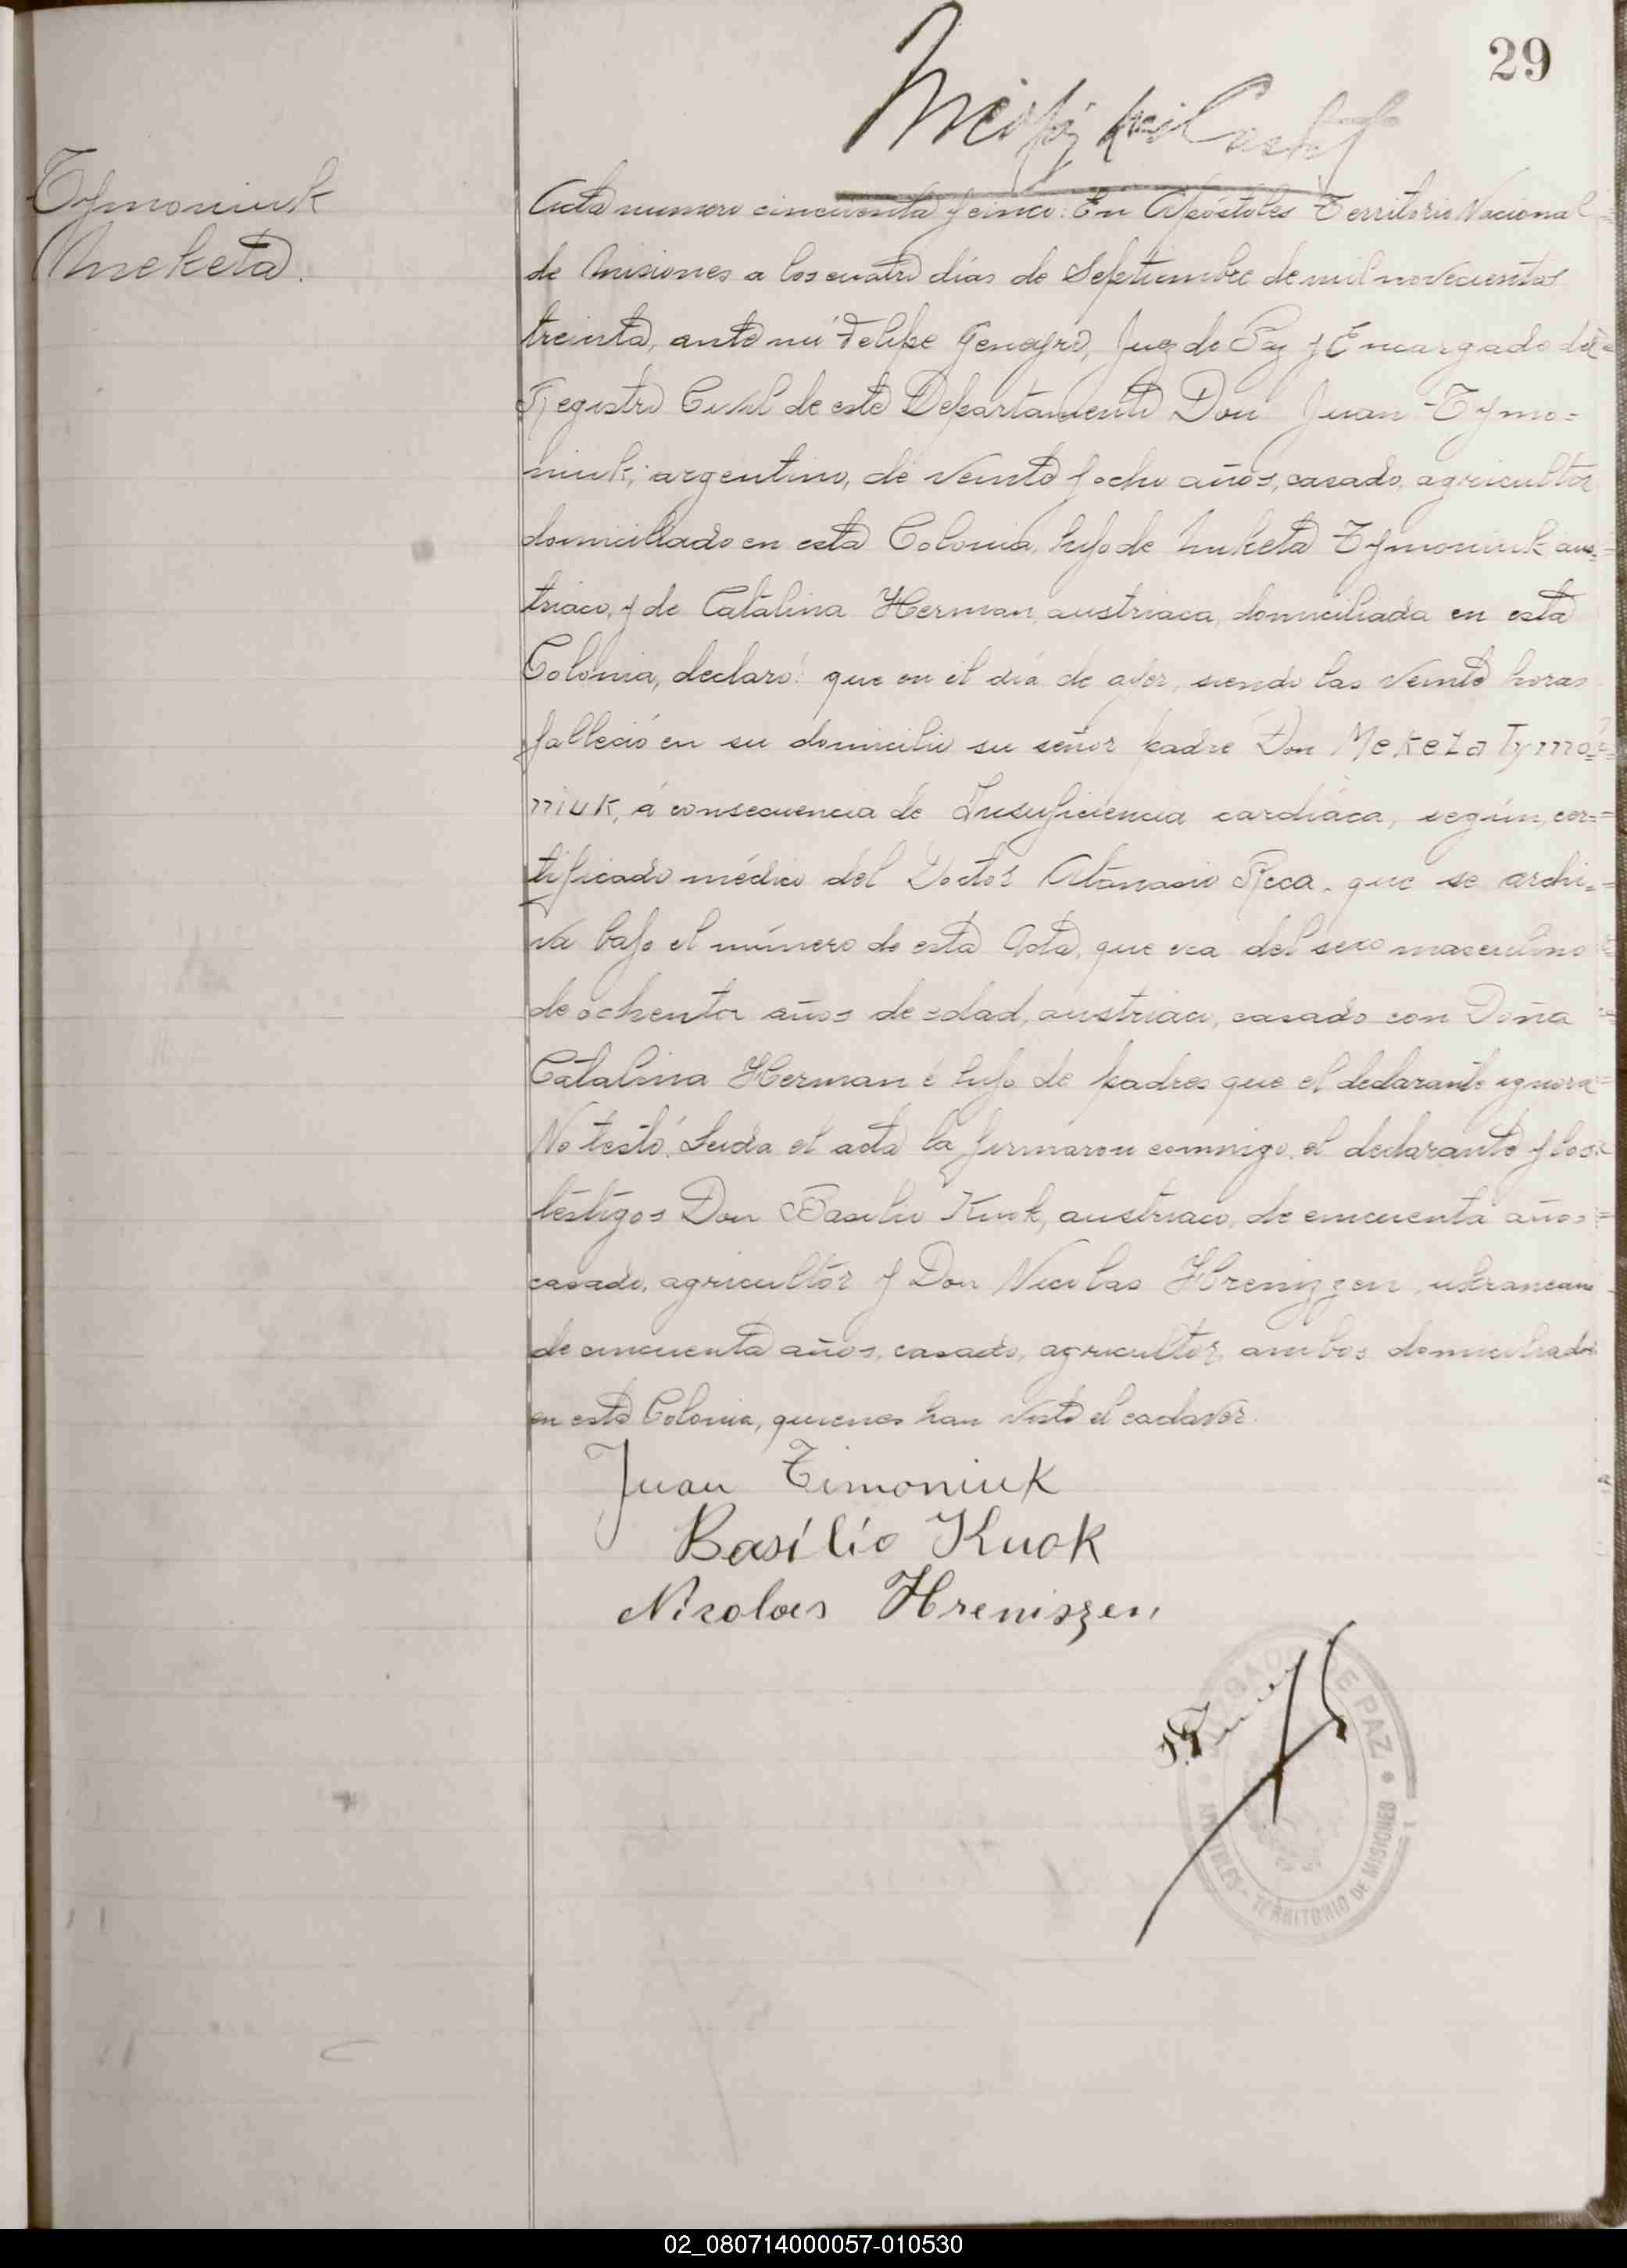 29
Tymoniuk
Meketa.
Acta numero cincuenta y cinco: En Apóstoles Territorio Nacional
de Misiones a los cuatro días de Septiembre de mil novecientos
treinta, ante mi Felipe Juez de Paz y Encargado del
Registro Civil de este Departamento Don Juan Tymo=
niuk, argentino, de veinte y ocho años, casado, agricultor
domiciliado en esta Colonia, hijo de Meketa Tymoniuk aus=
triaco, y de Catalina Herman, austriaca, domiciliada en esta
Colonia, declaró: que en el día de ayer, siendo las veinte horas
falleció en su domicilio su señor padre Don Meketa Tymo=
niuk, á consecuencia de Insuficiencia cardíaca, según, cer=
tificado médico del Doctor Atanasio Reca, que se archi=
va bajo el número de esta acta, que era del sexo masculino
de ochenta años de edad, austriaco, casado con Doña
Catalina Herman é hijo de padres que el declarante ignora
No testó. Leida el acta la firmaron conmigo, el declarante y los
testigos Don Basilio Kuok, austriaco, de cincuenta años
casado, agricultor y Don Nicolas Hreniszen, ukraneano
de cincuenta años, casado, agricultor, ambos domiciliados
en esta Colonia, quienes han visto el cadaver.
Juan Timoniuk
Basílio Kuok
Nicolas Hreniszen
JUZGADO DE PAZ
APOSTOLES - TERRITORIO DE MISIONES
02_080714000057-010530